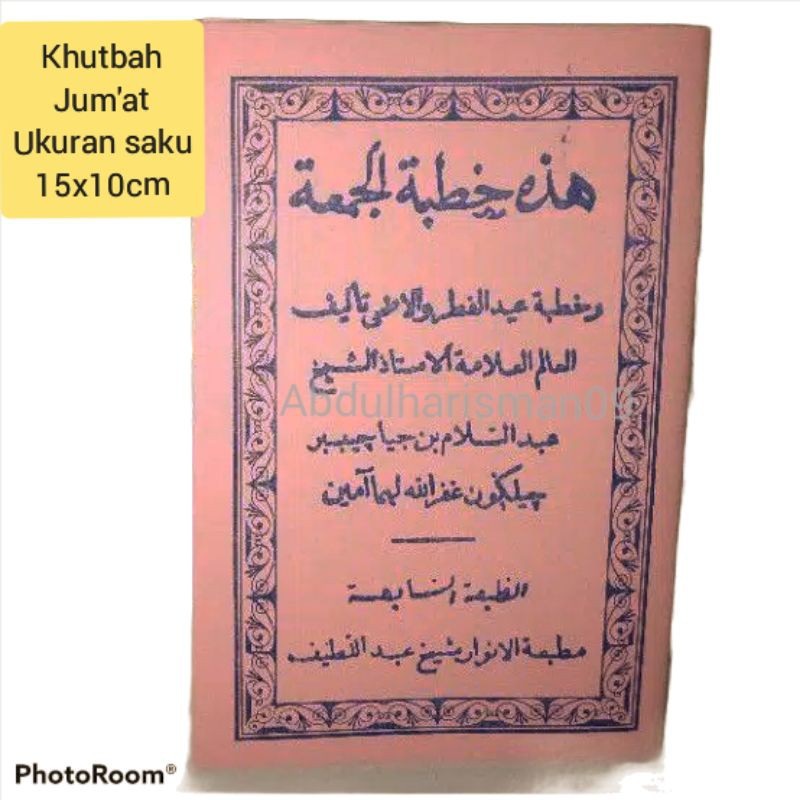 Khutbah
Jum'at
Ukuran saku
15x10cm
هذه خطبة الجمعة
وخطبة عيد الفطر والاضحى تأليف
العالم العلامة الاستاذ الشيخ
Abdulharisman09
عبد السلام بن جيا چيبير
چيلڮون غفر الله لهما آمين
الطبعة السابعة
مطبعة الانوار شيخ عبد اللطيف
PhotoRoom®